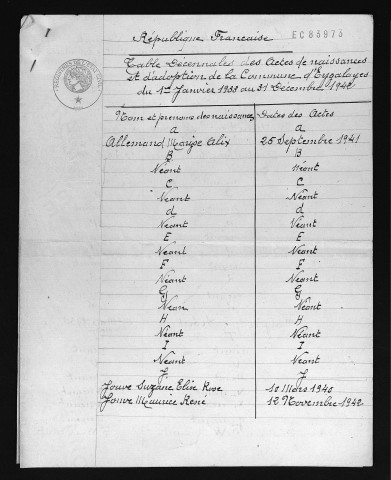 République Française
EC83973
Table Décennales des Actes de naissances
et d'adoption de la Commune d'Eygalayes
du 1er Janvier 1933 au 31 Décembre 1942
Nom et prénoms des naissances Dates des Actes
a a
Allemand Maryse Alix 25 Septembre 1941
B B
Néant Néant
C C
Néant Néant
d d
Néant Néant
E E
Néant Néant
F F
Néant Néant
G G
Néan Néant
H H
Néant Néant
I I
Néant Néant
J J
Jouve Suzane Elise Rose 10 Mars 1940
Jouve Maurice René 12 Novembre 1942